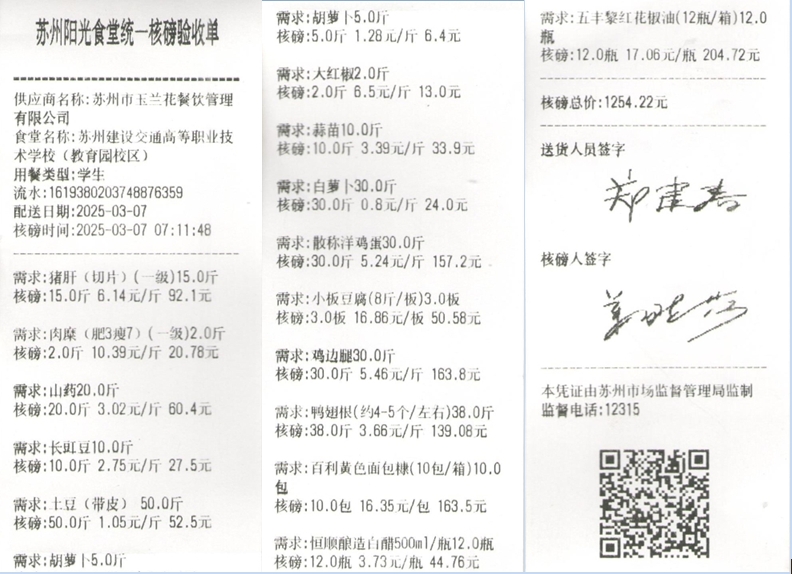 苏州阳光食堂统一核磅验收单
供应商名称:苏州市玉兰花餐饮管理
有限公司
食堂名称:苏州建设交通高等职业技
术学校（教育园校区）
用餐类型:学生
流水:1619380203748876359
配送日期:2025-03-07
核磅时间:2025-03-07 07:11:48
需求:猪肝（切片）(一级)15.0斤
核磅:15.0斤 6.14元/斤 92.1元
需求:肉糜（肥3瘦7）(一级)2.0斤
核磅:2.0斤 10.39元/斤 20.78元
需求:山药20.0斤
核磅:20.0斤 3.02元/斤 60.4元
需求:长豇豆10.0斤
核磅:10.0斤 2.75元/斤 27.5元
需求:土豆（带皮） 50.0斤
核磅:50.0斤 1.05元/斤 52.5元
需求:胡萝卜5.0斤
需求:胡萝卜5.0斤
核磅:5.0斤 1.28元/斤 6.4元
需求:大红椒2.0斤
核磅:2.0斤 6.5元/斤 13.0元
需求:蒜苗10.0斤
核磅:10.0斤 3.39元/斤 33.9元
需求:白萝卜30.0斤
核磅:30.0斤 0.8元/斤 24.0元
需求:散称洋鸡蛋30.0斤
核磅:30.0斤 5.24元/斤 157.2元
需求:小板豆腐(8斤/板)3.0板
核磅:3.0板 16.86元/板 50.58元
需求:鸡边腿30.0斤
核磅:30.0斤 5.46元/斤 163.8元
需求:鸭翅根(约4-5个/左右)38.0斤
核磅:38.0斤 3.66元/斤 139.08元
需求:百利黄色面包糠(10包/箱)10.0
包
核磅:10.0包 16.35元/包 163.5元
需求:恒顺酿造白醋500ml/瓶12.0瓶
核磅:12.0瓶 3.73元/瓶 44.76元
需求:五丰黎红花椒油(12瓶/箱)12.0
瓶
核磅:12.0瓶 17.06元/瓶 204.72元
核磅总价:1254.22元
送货人员签字
核磅人签字
本凭证由苏州市场监督管理局监制
监督电话:12315